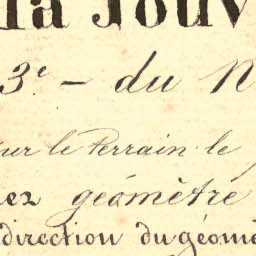 la Jouv
3e. - du N
sur le Terrain le
nez géomètre
direction du géomè